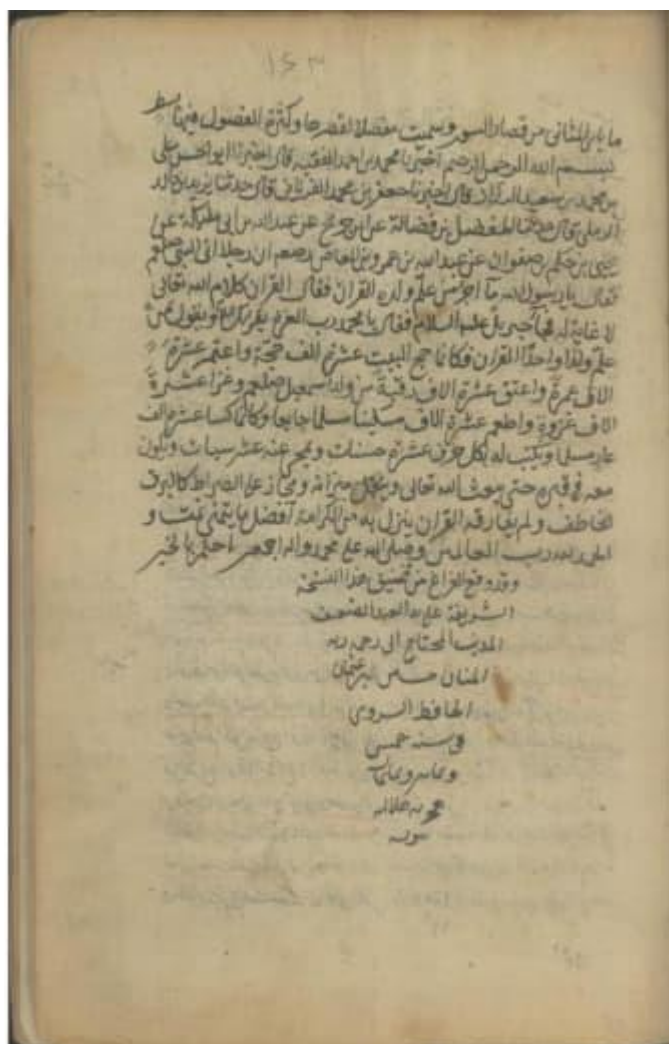 ١٤٣
ما يلي المثاني من قصار السور وسميت مفصلا لقصرها وكثرة الفصول فيها
بسم الله الرحمن الرحيم اخبرنا محمد بن احمد الفقيه قال اخبرنا ابو الحسن علي
بن محمد بن سعيد قال اخبرنا جعفر بن محمد الفريابي قال حدثنا يزيد بن خالد
الرملي قال حدثنا المفضل بن فضالة عن ابن جريج عن عبد الله بن ابي مليكة عن
بن حكيم بن صفوان عن عبد الله بن عمرو بن العاص ان رجلا اتى النبي صلعم
فقال يا رسول الله ما اجر من علم ولده القران فقال القران كلام الله تعالى
لا غاية له فجا جبريل عليه السلام فقال يا محمد رب العزة ويقول من
علم ولدا واحدا القران فكانما حج البيت عشرة الف حجة واعتمر عشرة
الاف عمرة واعتق عشرة الاف رقبة من ولد اسمعيل صلعم وغزا عشرة
الاف غزوة واطعم عشرة الاف مسكينا مسلما جايعا وكانما كسا عشرة الف
عار مسلما ويكتب له بكل حرف عشرة حسنات ويمحو عنه عشر سيات ويكون
معه في قبره حتى يبعث الله تعالى ويثقل ميزانه وجاز على الصراط كالبرق
الخاطف ولم يفارقه القران ينزل به من الكرامة افضل ما يتمنى تمت و
الحمد لله رب العالمين وصلى الله على محمد واله اجمعين
وقد وقع الفراغ من هذا النسخة
الشريفة على يد العبد الضعيف
المذنب المحتاج الى رحمة ربه
المنان بن عثمان
الحافظ الرومي
في سنة خمس
وثمانين وثمانمائة